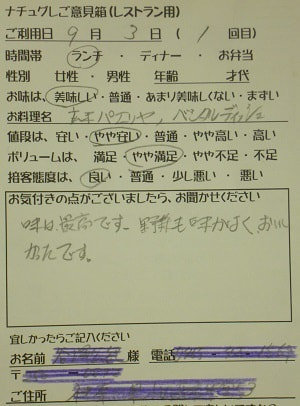 ナチュグしご意見箱(レストラン用)
ご利用日 9月 3日( 1回目)
時間帯 ランチ・ディナー・お弁当
性別 女性・男性 年齢 才代
お味は、美味しい・普通・あまり美味しくない・まずい
お料理名
値段は、安い・やや安い・普通・やや高い・高い
ボリュームは、満足・やや満足・やや不足・不足
接客態度は、良い・普通・少し悪い・悪い
お気付きの点がございましたら、お聞かせください
味は最高です。野菜も味がよく、おいし
かたです。
宜しかったらご記入ください
お名前 様 電話
〒
ご住所